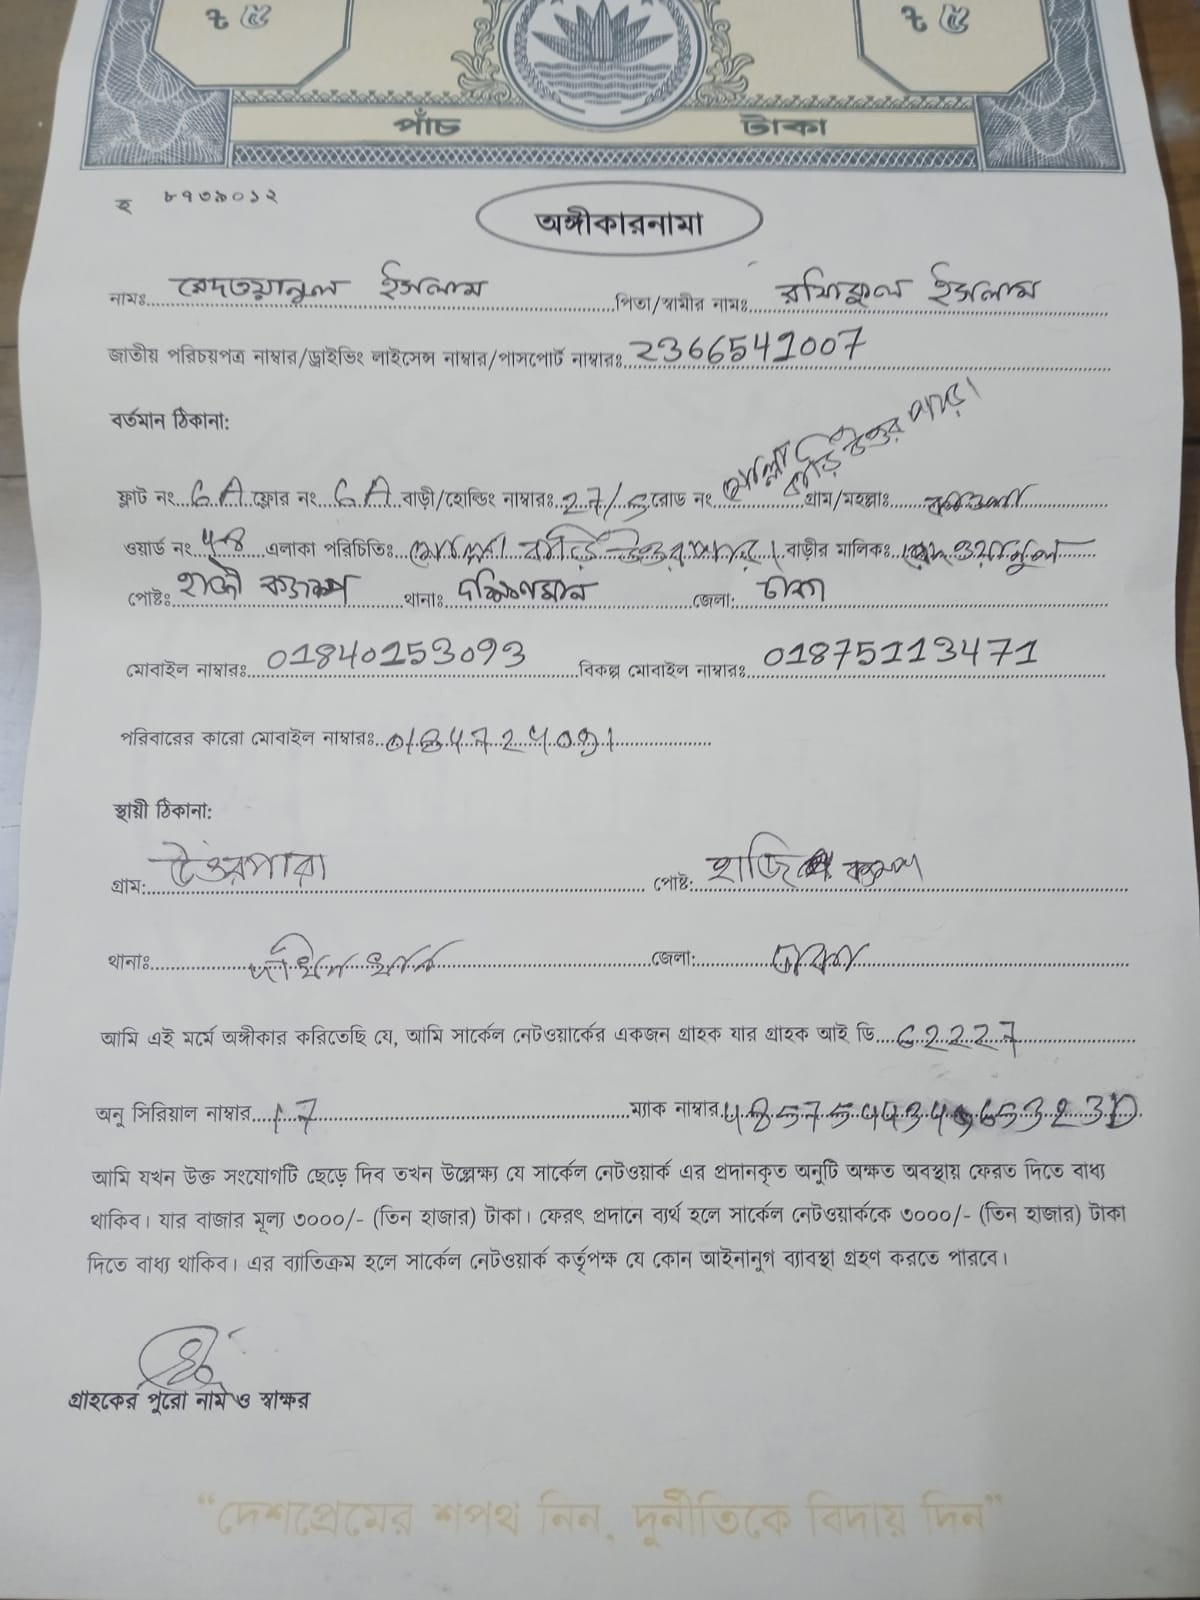 ৳ ৫ ৳ ৫
পাঁচ টাকা
হ ৮৭৩৯০১২
অঙ্গীকারনামা
নামঃ রেদওয়ানুল ইসলাম পিতা/স্বামীর নামঃ রফিকুল ইসলাম
জাতীয় পরিচয়পত্র নাম্বার/ড্রাইভিং লাইসেন্স নাম্বার/পাসপোর্ট নাম্বারঃ 2366541007
বর্তমান ঠিকানা:
মোল্লা বাড়ি উত্তর পাড়া।
ফ্লাট নং 6A ফ্লোর নং 6A বাড়ী/হোল্ডিং নাম্বারঃ 27/5 রোড নং গ্রাম/মহল্লাঃ
ওয়ার্ড নং 48 এলাকা পরিচিতিঃ মোল্লা বাড়ি উত্তর পাড়া। বাড়ীর মালিকঃ রেদওয়ানুল
পোষ্টঃ হাজী ক্যাম্প থানাঃ দক্ষিণখান জেলা: ঢাকা
মোবাইল নাম্বারঃ 01840153093 বিকল্প মোবাইল নাম্বারঃ 01875113471
পরিবারের কারো মোবাইল নাম্বারঃ
স্থায়ী ঠিকানা:
গ্রাম: উত্তরপারা পোষ্ট: হাজি ক্যাম্প
থানাঃ দক্ষিন খান জেলা: ঢাকা
আমি এই মর্মে অঙ্গীকার করিতেছি যে, আমি সার্কেল নেটওয়ার্কের একজন গ্রাহক যার গ্রাহক আই ডি 62227
অনু সিরিয়াল নাম্বার 17 ম্যাক নাম্বার
আমি যখন উক্ত সংযোগটি ছেড়ে দিব তখন উল্লেক্ষ্য যে সার্কেল নেটওয়ার্ক এর প্রদানকৃত অনুটি অক্ষত অবস্থায় ফেরত দিতে বাধ্য
থাকিব। যার বাজার মূল্য ৩০০০/- (তিন হাজার) টাকা। ফেরৎ প্রদানে ব্যর্থ হলে সার্কেল নেটওয়ার্ককে ৩০০০/- (তিন হাজার) টাকা
দিতে বাধ্য থাকিব। এর ব্যাতিক্রম হলে সার্কেল নেটওয়ার্ক কর্তৃপক্ষ যে কোন আইনানুগ ব্যাবস্থা গ্রহণ করতে পারবে।
গ্রাহকের পুরো নাম ও স্বাক্ষর
“দেশপ্রেমের শপথ নিন, দুর্নীতিকে বিদায় দিন”